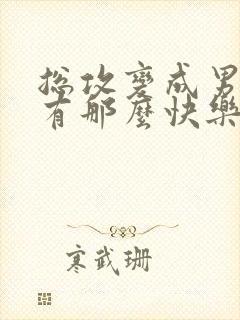 總攻變成男
有那麼快樂
寒武珊